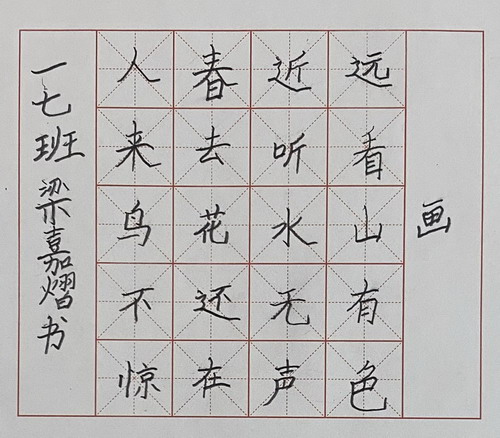 画
远看山有色
近听水无声
春去花还在
人来鸟不惊
一七班 梁嘉熠书